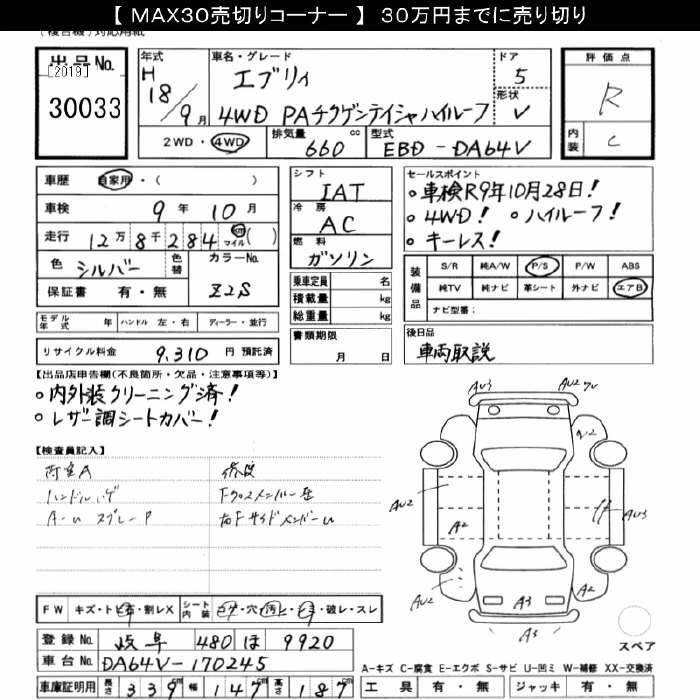 【 MAX30売切りコーナー 】 30万円までに売り切り
出品No.
[2019]
30033
年式
H 18/9月
車名・グレード
エブリイ
4WD PAチクゲンテイシャハイルーフ
ドア
5
形状
V
評価点
R
内装
C
2WD・4WD
排気量 cc
660
型式
EBD-DA64V
車歴 自家用・( )
車検 9年 10月
走行 12万8千284 km マイル( )
色 シルバー 色替 カラーNo.
保証書 有・無 Z2S
モデル年式 年 ハンドル 左・右 ディーラー・並行
リサイクル料金 9,310 円 預託済
シフト
IAT
冷房
AC
燃料
ガソリン
乗車定員 名
積載量 kg
総重量 kg
書類期限
月 日
セールスポイント
○車検R9年10月28日!
○4WD! ○ハイルーフ!
○キーレス!
装備品
S/R 純A/W P/S P/W ABS
純TV 純ナビ 革シート 外ナビ エアB
ナビ型番:
後日品
車両取説
【出品店申告欄(不良箇所・欠品・注意事項等)】
○内外装クリーニング済!
○レザー調シートカバー!
【検査員記入】
ハンドルハゲ
A-U スプレーP
修復
Fクロスメンバー歪
右FサイドメンバーU
AU3
AU2
AU2
A2
AU2
AU3
AU2
A3
A2
A3
スペア
FW キズ・トビ石・割レX シート内装 コゲ・穴・汚レ・シミ・破レ・スレ
登録No. 岐阜 480 ほ 9920
車台No. DA64V-170245
車庫証明用 長さ 339cm 幅 147cm 高さ 187cm
A-キズ C-腐食 E-エクボ S-サビ U-凹ミ W-補修 XX-交換済
工具 有・無 ジャッキ 有・無